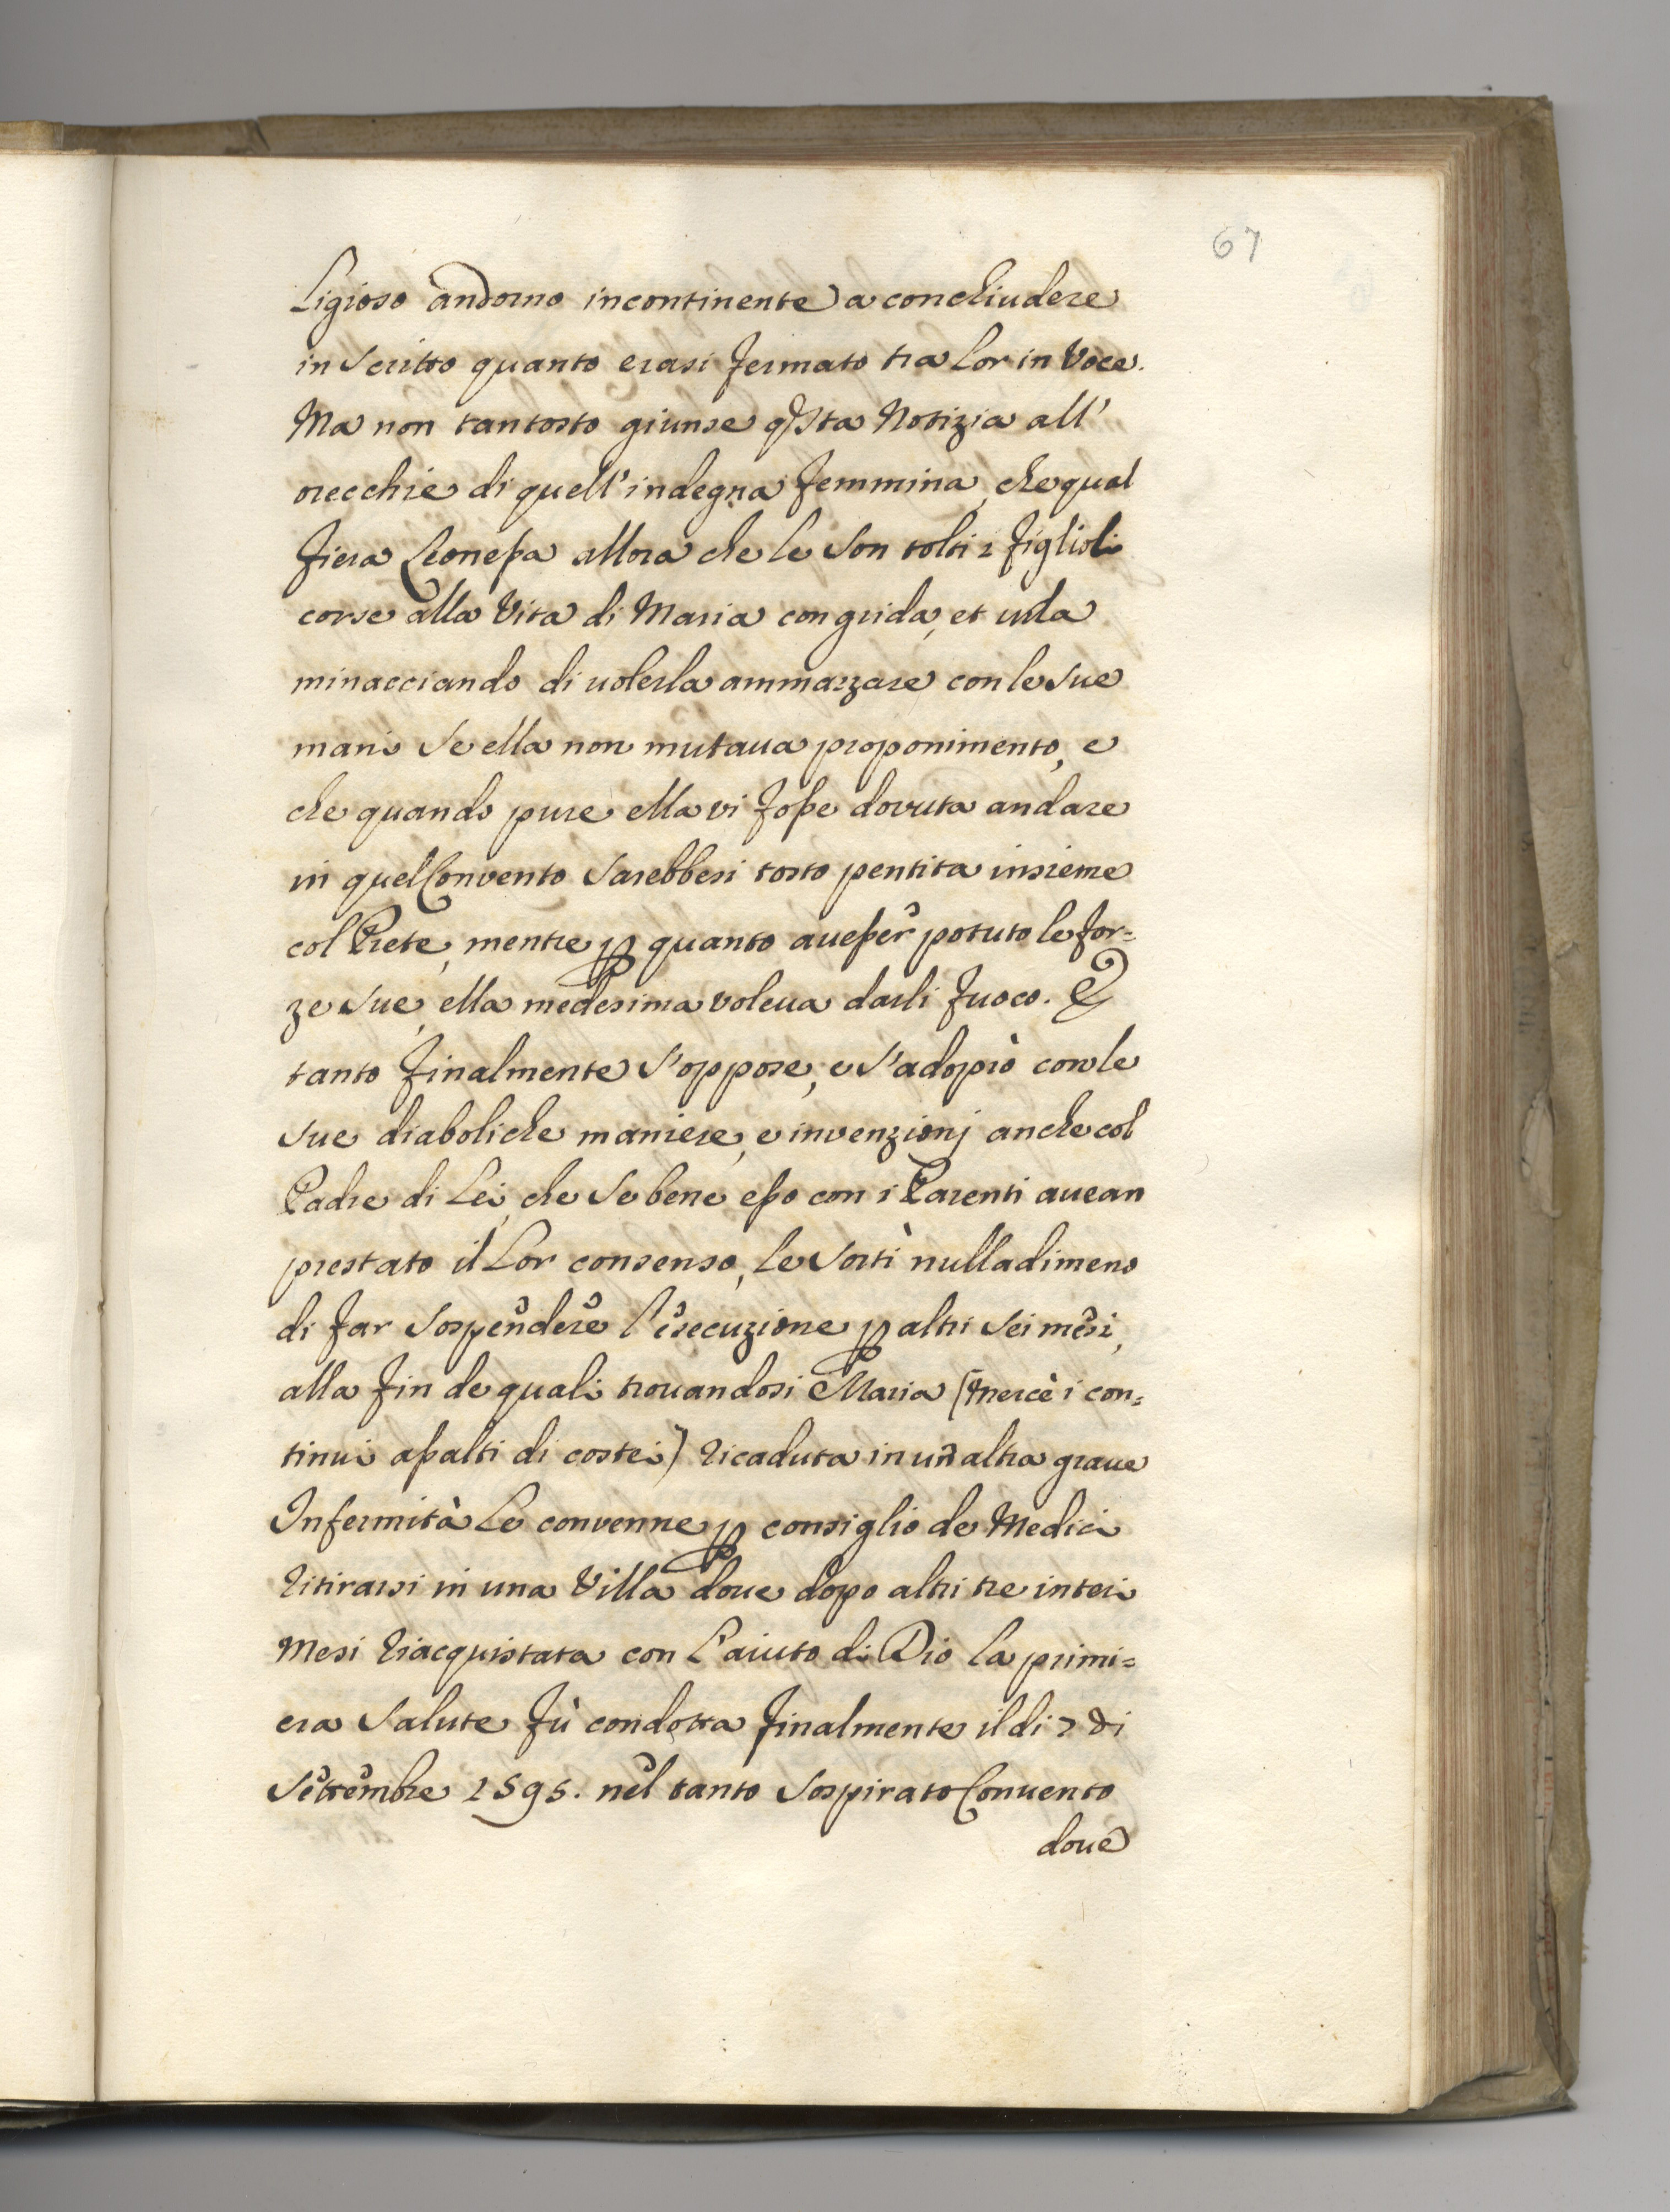 67
ligioso andorno incontinente a conchiudere
in scritto quanto erasi fermato tra lor in voce.
Ma non tantosto giunse qsta Notizia all'
orecchie di quell'indegna femmina, che qual
fiera Leonessa allora che le son tolti i figlioli
corse alla Vita di Maria con grida, et urla
minacciando di uolerla ammazzare con le sue
mani se ella non mutaua proponimento, e
che quando pure ella vi fosse dovuta andare
in quel Convento sarebbesi tosto pentita insieme
col Prete, mentre p quanto auesser potuto le for=
ze sue, ella medesima voleua darli fuoco. E
tanto finalmente s'oppose, e s'adoprò con le
sue diaboliche maniere, e invenzionj anche col
Padre di Lei, che se bene esso con i Parenti auean
prestato il Lor consenso, le sortì nulladimeno
di far sospendere l'esecuzione p altri sei mesi,
alla fin de quali trouandosi Maria (mercè i con=
tinui assalti di costei) ricaduta in un altra graue
Infermità le convenne p consiglio de Medici
ritirarsi in una Villa doue dopo altri tre interi
Mesi riacquistata con l'aiuto di Dio la primi=
era salute fù condotta finalmente il di 7 di
Settembre 1595. nel tanto sospirato Conuento
doue